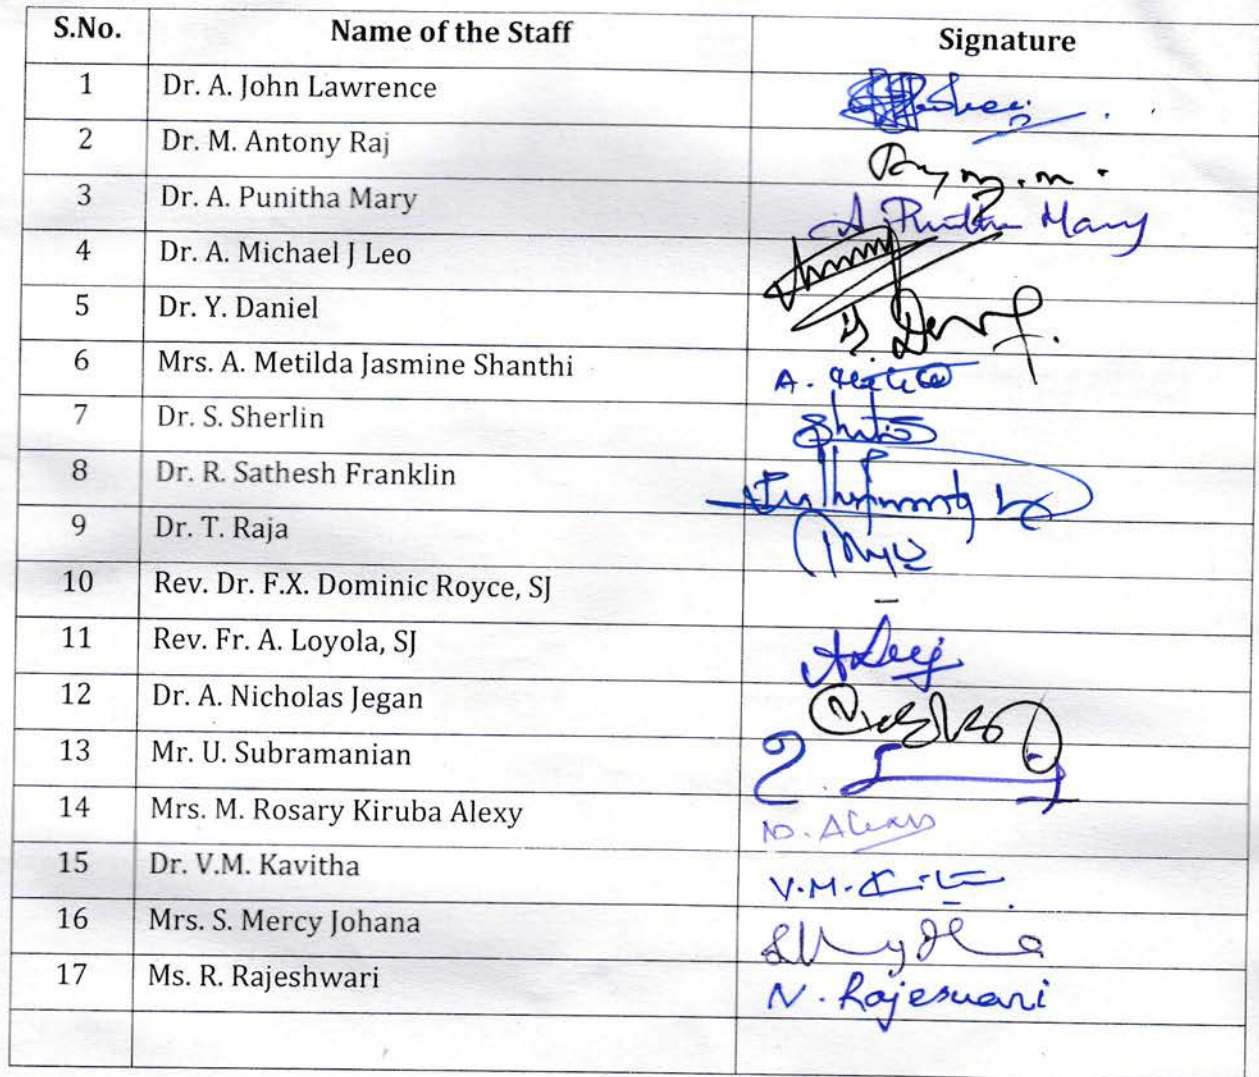 S.No. Name of the Staff Signature
1 Dr. A. John Lawrence
2 Dr. M. Antony Raj
3 Dr. A. Punitha Mary A. Punitha Mary
4 Dr. A. Michael J Leo
5 Dr. Y. Daniel
6 Mrs. A. Metilda Jasmine Shanthi A.
7 Dr. S. Sherlin
8 Dr. R. Sathesh Franklin
9 Dr. T. Raja
10 Rev. Dr. F.X. Dominic Royce, SJ –
11 Rev. Fr. A. Loyola, SJ
12 Dr. A. Nicholas Jegan
13 Mr. U. Subramanian
14 Mrs. M. Rosary Kiruba Alexy
15 Dr. V.M. Kavitha V.M.
16 Mrs. S. Mercy Johana
17 Ms. R. Rajeshwari N. Rajeswari